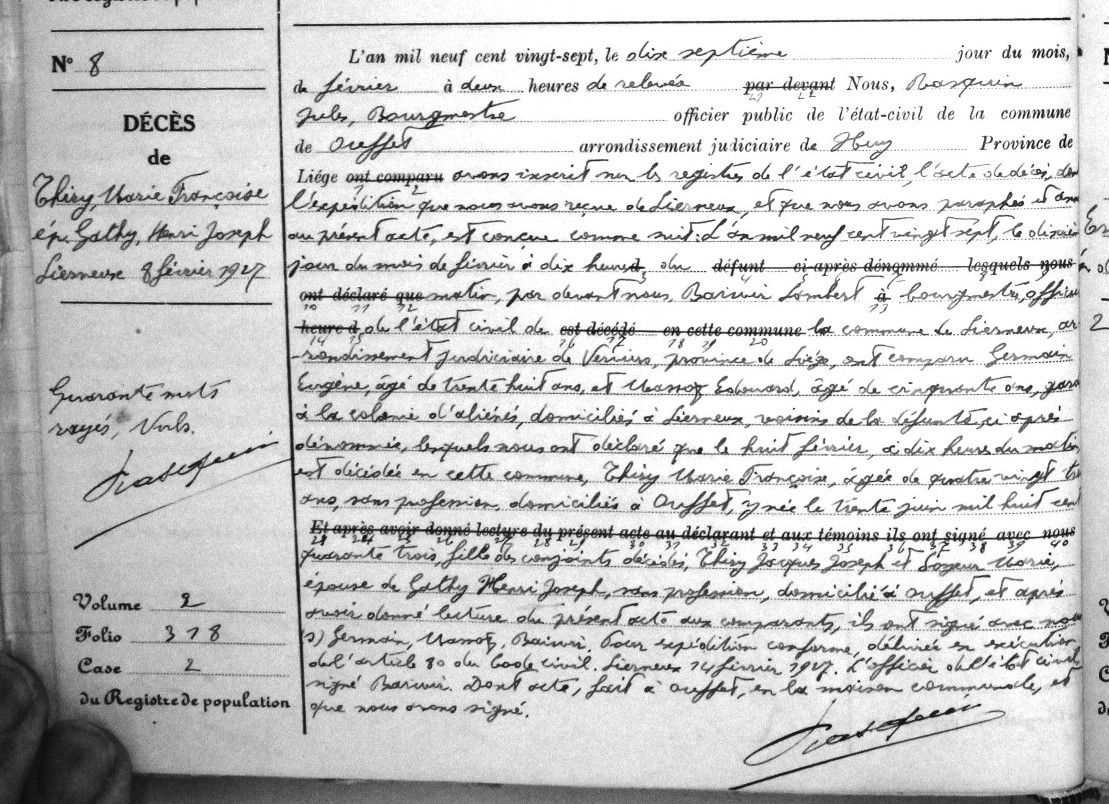 N° 8
DÉCÈS
de
Thiry Marie Françoise
ép. Gathy, Henri Joseph
Lierneux 8 février 1927
Quarante mots
rayés, Nuls.
Volume 2
Folio 318
Case 2
du Registre de population
L'an mil neuf cent vingt-sept, le dix septième jour du mois,
de février à deux heures de relevée par devant Nous, Rasquin
Jules, Bourgmestre officier public de l'état-civil de la commune
de Ouffet arrondissement judiciaire de Huy Province de
Liége ont comparu avons inscrit sur les registres de l'état civil, l'acte de décès, dont
l'expédition que nous avons reçue de Lierneux, et que nous avons paraphée et
au présent acte, est conçue comme suit: L'an mil neuf cent vingt sept, le dixième
jour du mois de février à dix heures, du défunt ci-après dénommé lesquels nous
ont déclaré que matin, par devant nous Lambert à bourgmestre, officier
heure d de l'état civil de est décédé en cette commune la commune de Lierneux, ar
rondissement judiciaire de Verviers, province de Liége, ont comparu Germain
Eugène, âgé de trente huit ans, et Edouard, âgé de cinquante ans,
à la colonie d'aliénés, domiciliés à Lierneux, voisins de la défunte, ci après
dénommée, lesquels nous ont déclaré que le huit février, à dix heures du matin
est décédée en cette commune, Thiry Marie Françoise, âgée de quatre vingt
ans, sans profession, domiciliée à Ouffet, y née le trente juin mil huit cent
Et après avoir donné lecture du présent acte au déclarant et aux témoins ils ont signé avec nous
quarante trois, fille des conjoints décédés, Thiry Jacques Joseph et Marie,
épouse de Gathy Henri Joseph, sans profession, domicilié à Ouffet, et après
avoir donné lecture du présent acte aux comparants, ils ont signé avec nous
(s) Germain, Pour expédition conforme, délivrée en exécution
de l'article 80 du Code civil. Lierneux 14 février 1927. L'officier de l'état civil
signé Dont acte, fait à Ouffet, en la maison communale, et
que nous avons signé.